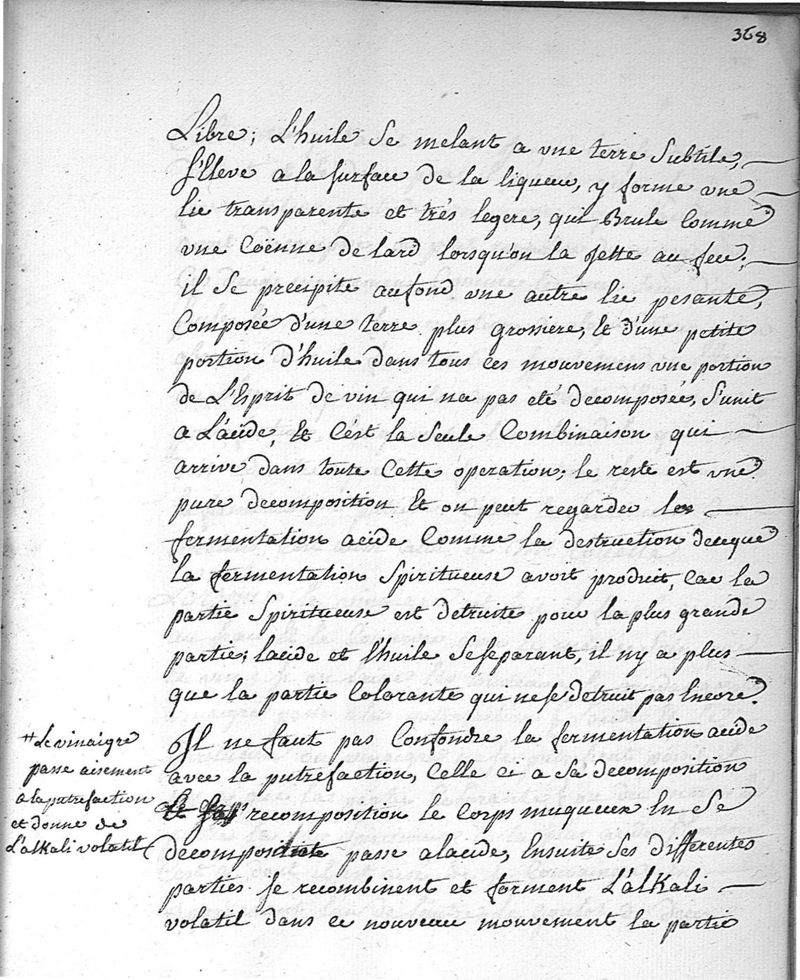 368
Libre; L'huile Se melant a vne terre Subtile,
s'Eleve a la surface de la liqueur, y forme vne
lie transparente et trés legere, qui Brule Comme
vne Coënne de lard lorsqu'on la jette au feu;
il Se precipite au fond vne autre lie pesante,
Composée d'une terre plus grossiere, et d'une petite
portion d'huile dans tous ces mouvemens vne portion
de L'Esprit de vin qui na pas eté decomposée, S'unit
a L'acide, et C'ést la Seule Combinaison qui
arrive dans toute Cette operation; le reste est vne
pure decomposition Et on peut regarder la
fermentation acide Comme la destruction deceque
la fermentation Spiritueuse avoit produit, Car la
partie Spiritueuse est detruite pour la plus grande
partie; lacide et l'huile Seseparant, il ny a plus
que la partie Colorante qui nese detruit pas Encore.
Il ne faut pas Confondre la fermentation acide
avec la putrefaction, Celle Ci a Sa decomposition
recomposition le Corps muqueux En Se
passe alacide, Ensuite Ses differentes
parties se recombinent et forment L'alKali
volatil dans ce nouveau mouvement la partie
#Le vinaigre
passe aisement
a la putrefaction
et donne de
L'alkali volatil